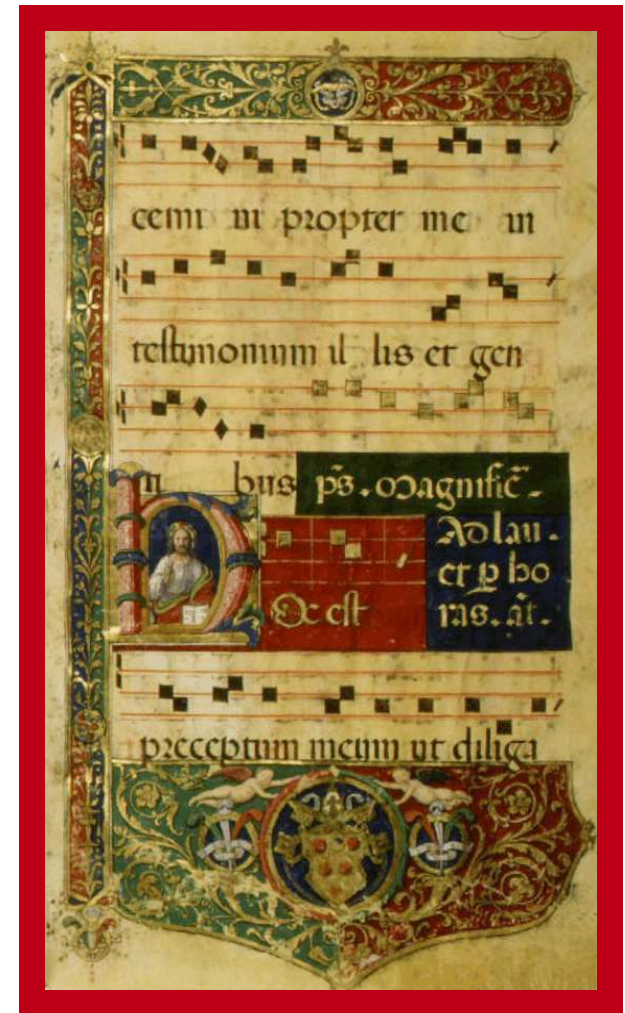 cemini propter me in
testimonium il lis et gen
ti bus ps. Magnific.
Ad lau.
et p ho
HOc est
ras. at.
preceptum meum ut diliga